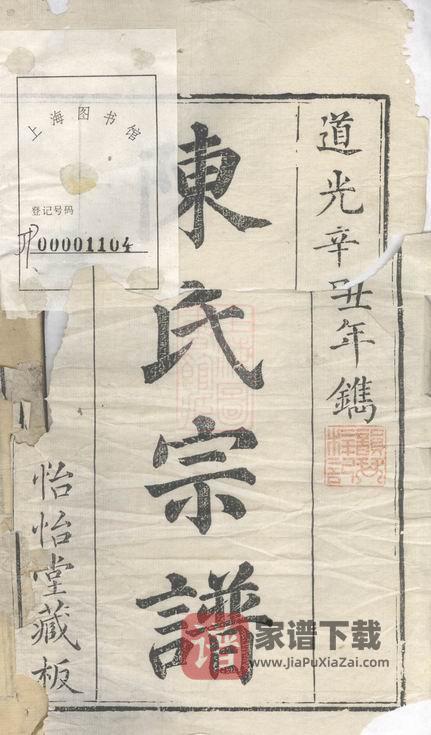 道光辛丑年鐫
東氏宗譜
怡怡堂藏板
上海图书馆
登记号码
00001104
谱
家谱下载
www.JiaPuXiaZai.com